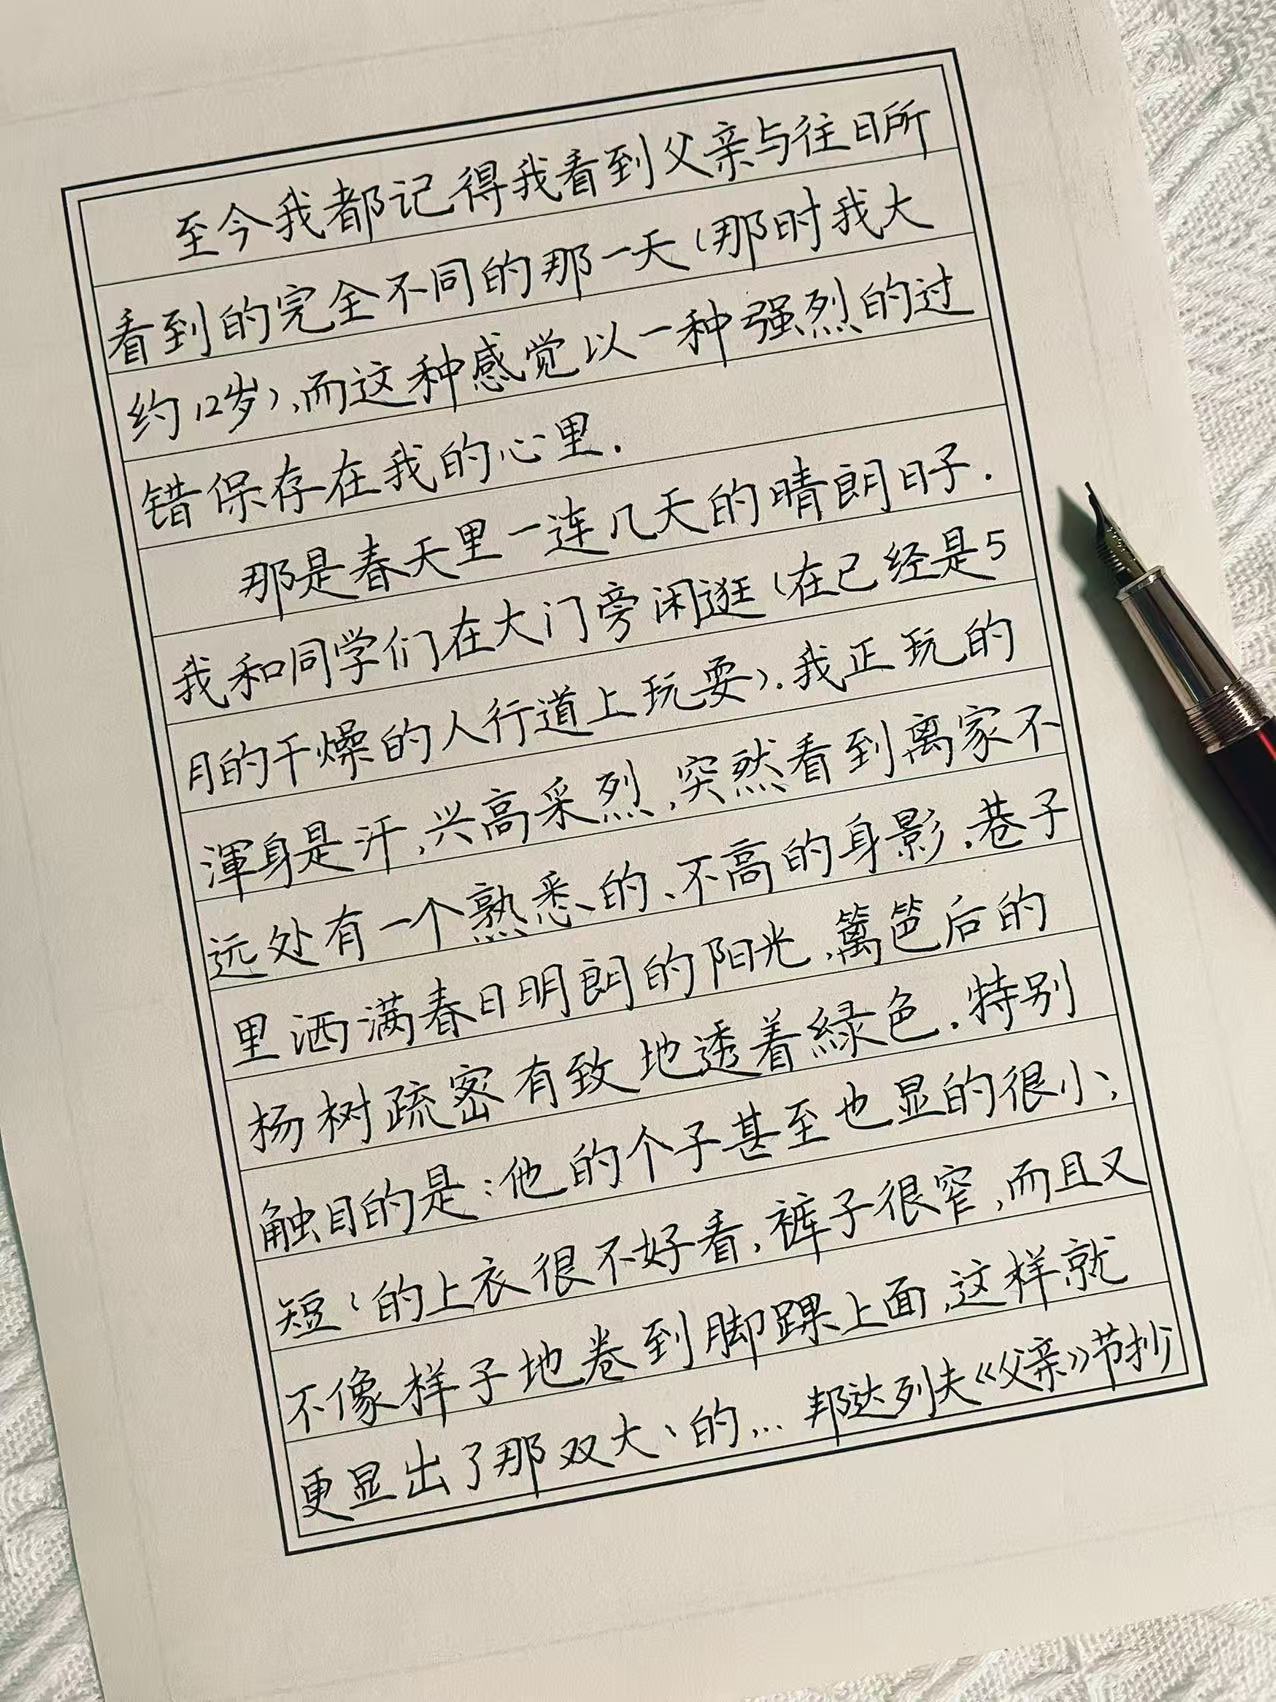 至今我都记得我看到父亲与往日所
看到的完全不同的那一天(那时我大
约12岁),而这种感觉以一种强烈的过
错保存在我的心里.
那是春天里一连几天的晴朗日子.
我和同学们在大门旁闲逛(在已经是5
月的干燥的人行道上玩耍).我正玩的
渾身是汗,兴高采烈,突然看到离家不
远处有一个熟悉的、不高的身影.巷子
里洒满春日明朗的阳光,篱笆后的
杨树疏密有致地透着緑色.特别
触目的是:他的个子甚至也显的很小;
短、的上衣很不好看,裤子很窄,而且又
不像样子地卷到脚踝上面,这样就
更显出了那双大、的... 邦达列夫《父亲》节抄